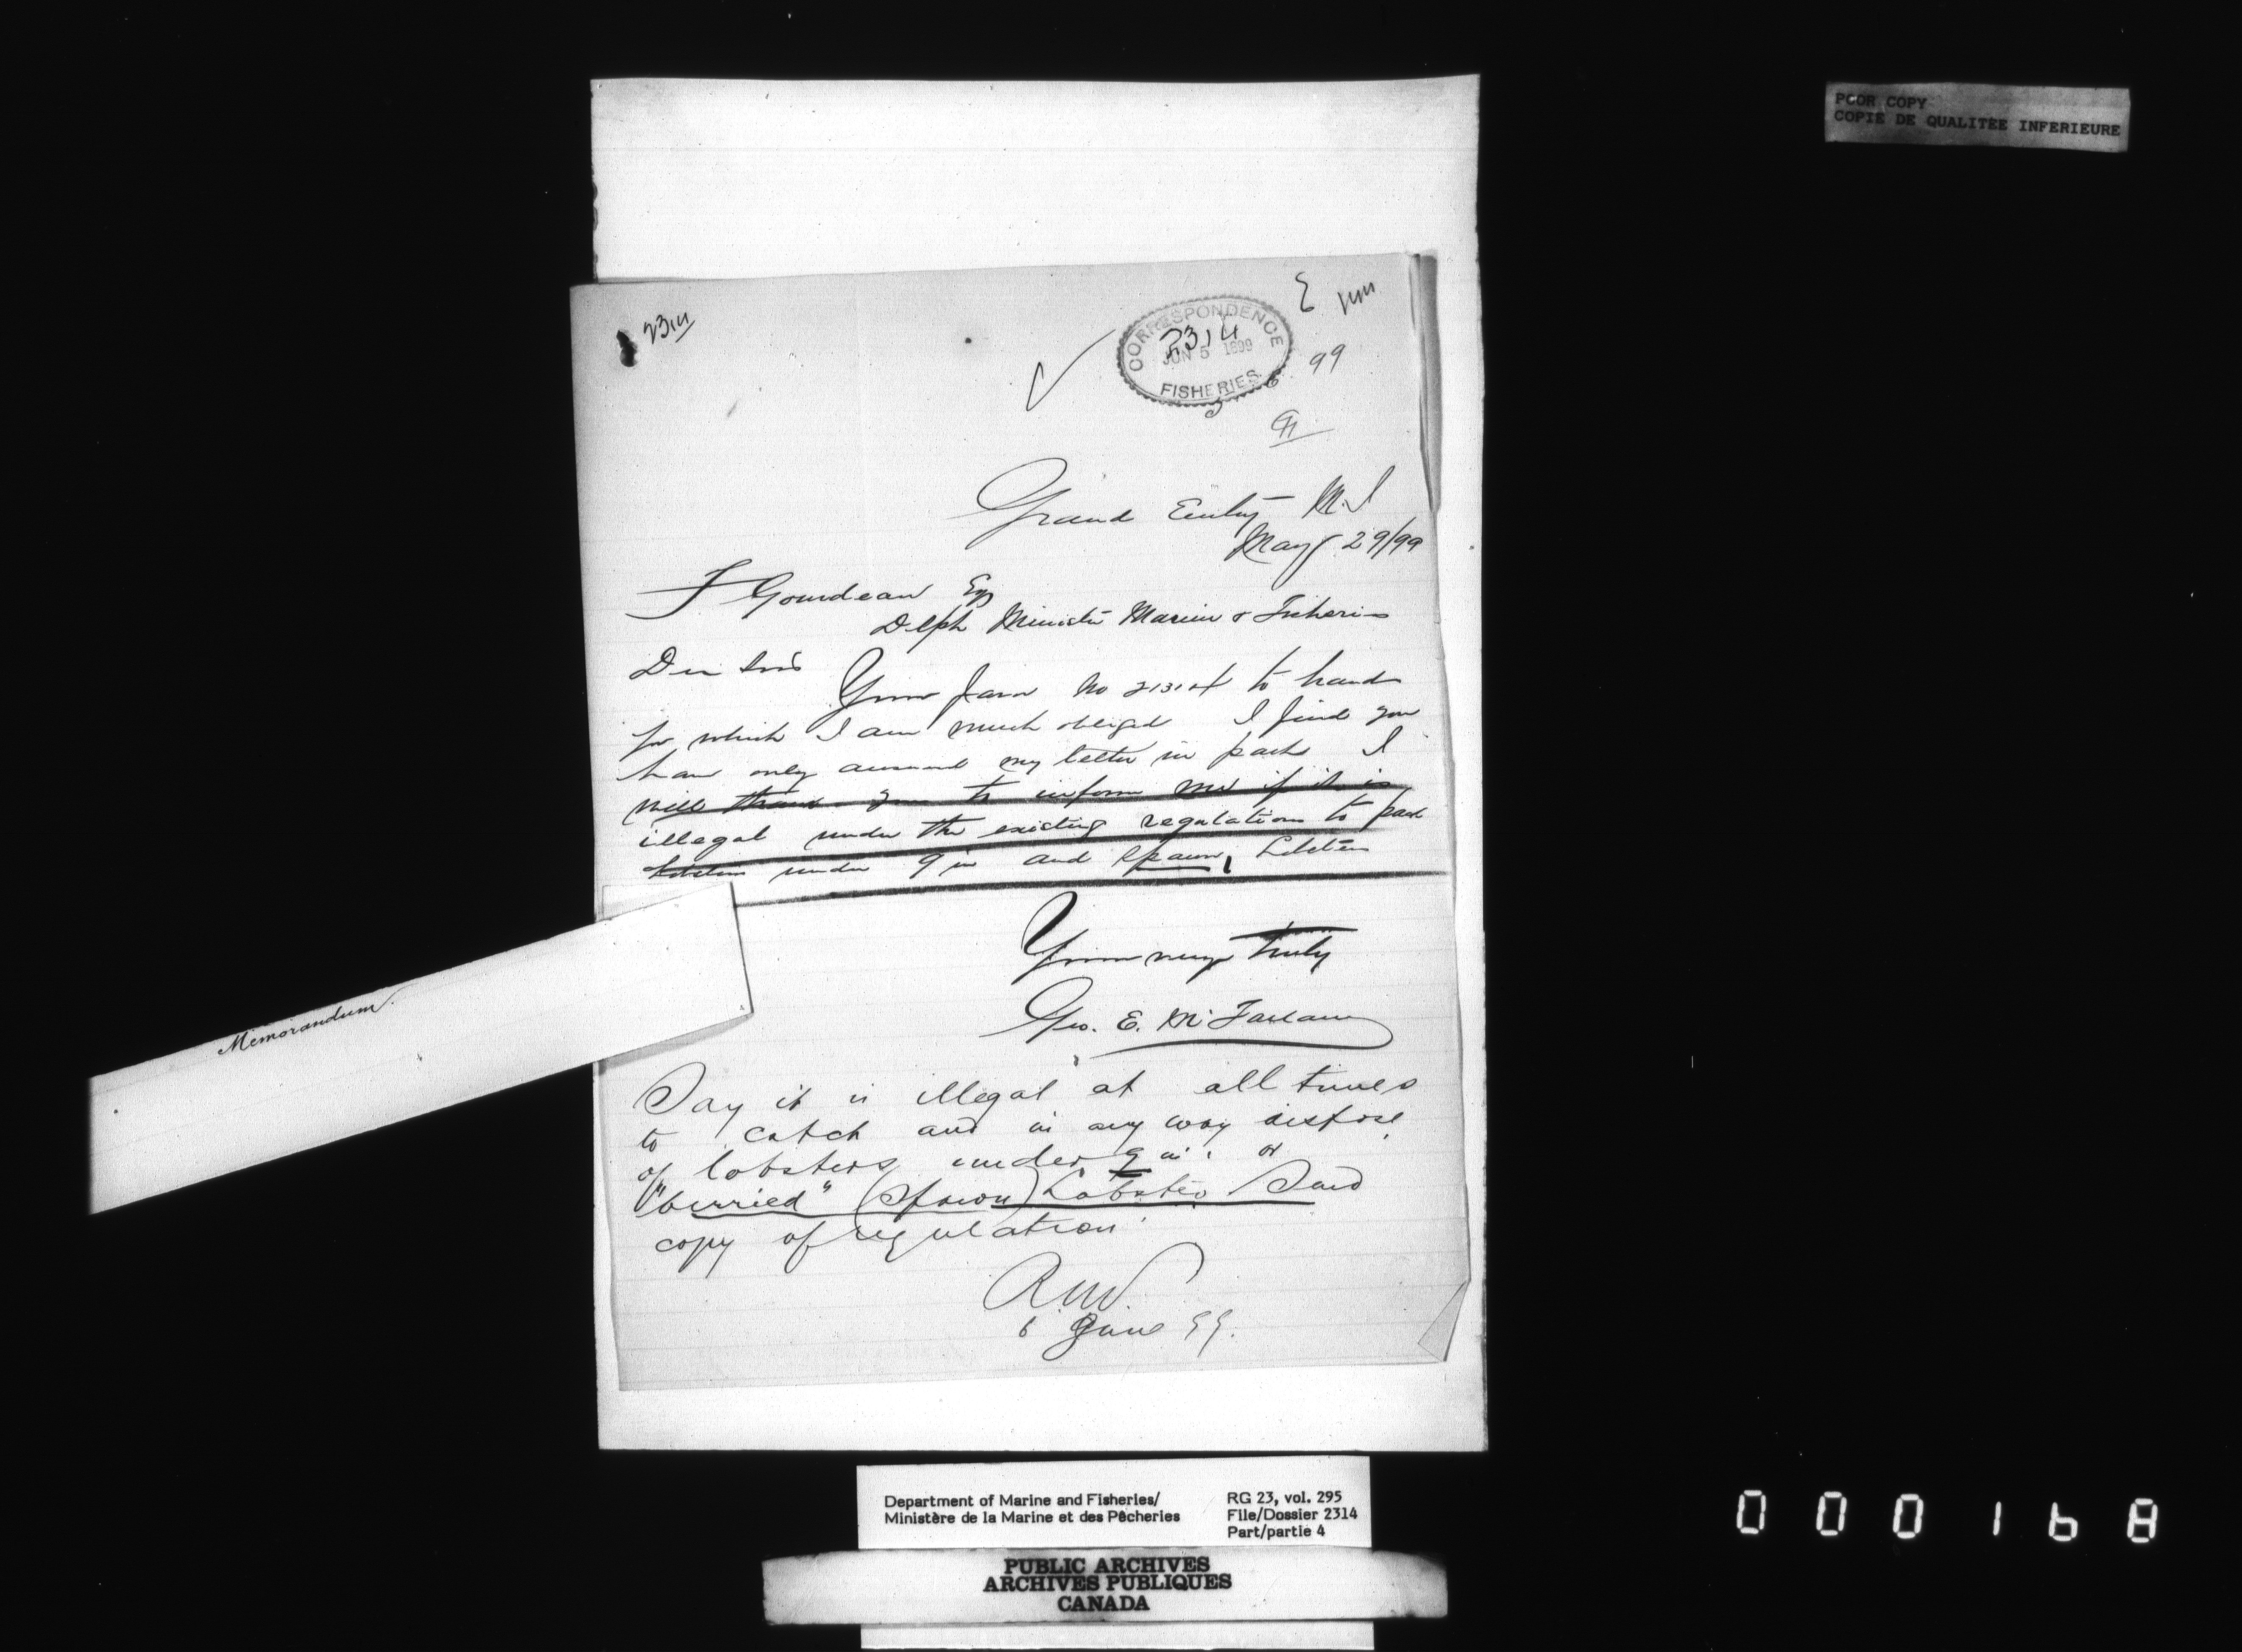 POOR COPY
COPIE DE QUALITEE INFERIEURE
2314
CORRESPONDENCE
2314
JUN 5 1899
FISHERIES
99
Grand Entry M.I
May 29/99
F Gourdeau Esq
Dept Minister Marine & Fisheries
Dear Sir
Your favor No 2314 to hand
for which I am much obliged I find you
have only answered my letter in part I
will thank you to inform me if it is
illegal under the existing regulations to pack
Lobsters under 9 in and Spawn Lobsters
Yours very truly
Geo. E. McFarlane
Memorandum
Say it is illegal at all times
to catch and in any way dispose
of lobsters under 9 in. or
"berried" (Spawn) Lobster Send
copy of regulation
6 June 99.
Department of Marine and Fisheries/
Ministère de la Marine et des Pêcheries
RG 23, vol. 295
File/Dossier 2314
Part/partie 4
PUBLIC ARCHIVES
ARCHIVES PUBLIQUES
CANADA
000168